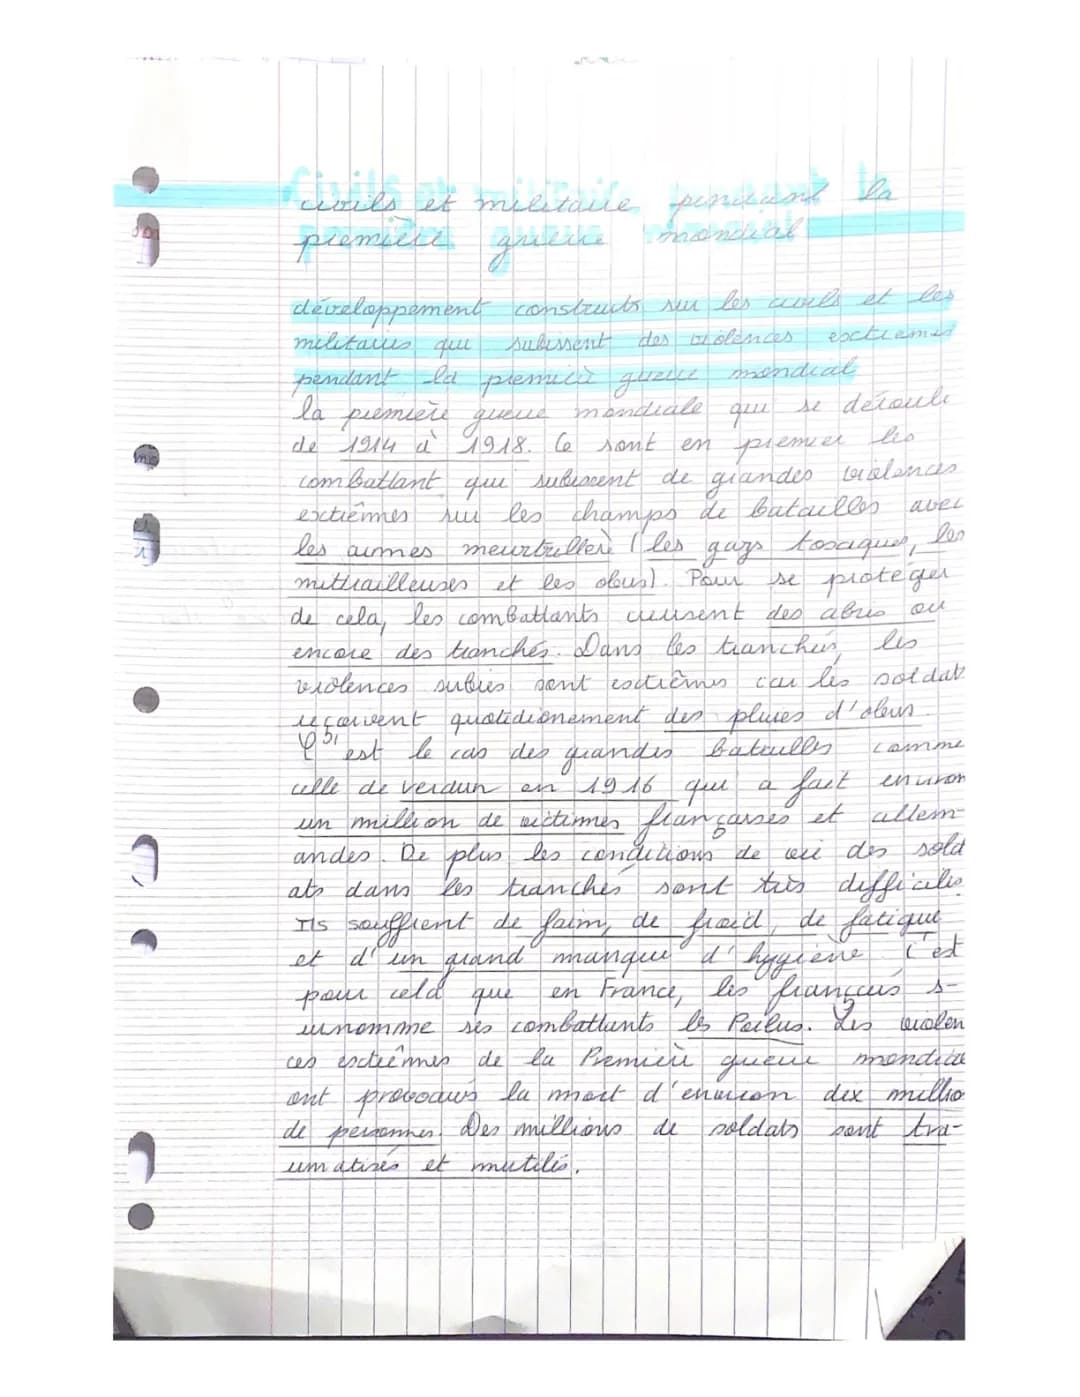 civils et militaire pendant la
première guerre mondial
développement construits sur les civils et les
militaires qui subissent des violences exctremes
pendant la première guerre mondial
la première guerre mondiale qui se déroule
de 1914 à 1918. Ce sont en premier les
combattant qui subissent de grandes violences
exctrêmes sur les champs de batailles avec
les armes meurtrière (les gazs toxiques, les
mitrailleuses et les obus). Pour se protéger
de cela, les combattants creusent des abris ou
encore des tranchés. Dans les tranchés, les
violences subies sont exctrêmes car les soldat
reçoivent quotidionement des pluies d'obus.
C'est le cas des grandes batailles comme
celle de verdun en 1916 qui a fait environ
un million de victimes françaises et allem-
andes. De plus les conditions de vie des sold
ats dans les tranchés sont très difficiles
Ils souffrent de faim, de froid, de fatigue
et d'un grand manque d'hygiène C'est
pour cela que en France, les français s-
urnomme ses combattants les Poilus. Les violen
ces exctrêmes de la Première guerre mondia
ont provoqués la mort d'environ dix millio
de personnes. Des millions de soldats sont tra-
umatisés et mutilés.